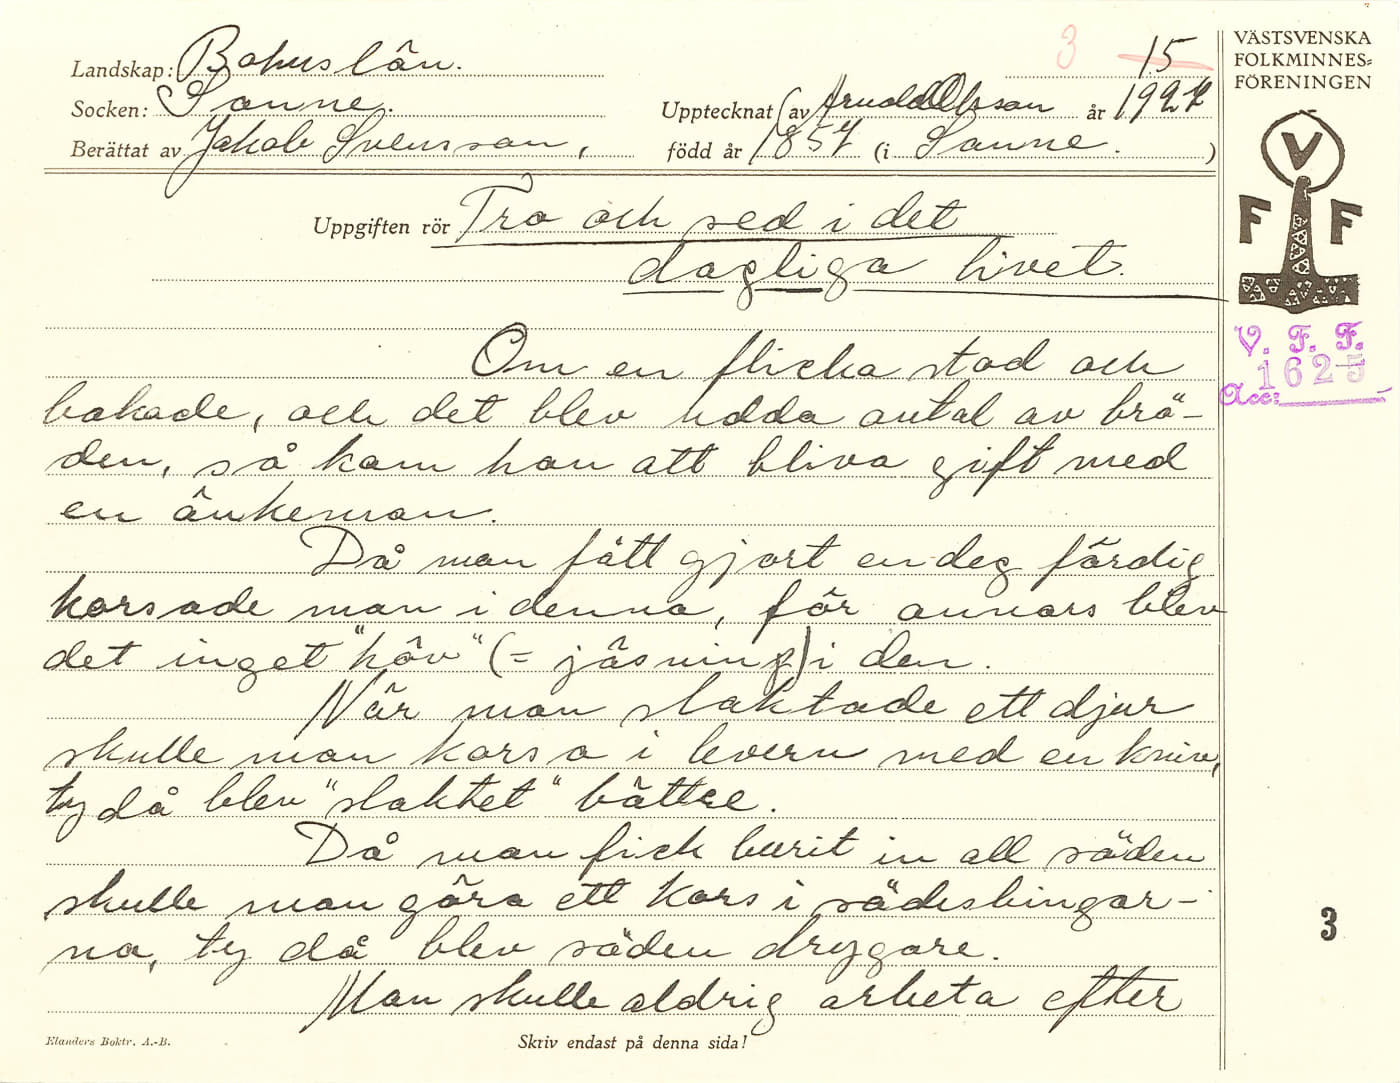 Landskap: Bohuslän.
3 15
Socken: Sanne.
Upptecknat av Arnold Olsson år 1927
Berättat av Jakob Svensson,
född år 1857 (i Sanne.)
Uppgiften rör Tro och sed i det
dagliga livet.
VÄSTSVENSKA
FOLKMINNES=
FÖRENINGEN
V
F F
V. F. F.
1625
Acc:
Om en flicka stod och
bakade, och det blev udda antal av brö-
den, så kom hon att bliva gift med
en änkeman.
Då man fått gjort en deg färdig
korsade man i denna, för annars blev
det inget "häv" (= jäsning) i den.
När man slaktade ett djur
skulle man korsa i levern med en kniv,
ty då blev "slaktet" bättre.
Då man fick burit in all säden
skulle man göra ett kors i sädesbingar-
na, ty då blev säden drygare.
Man skulle aldrig arbeta efter
3
Elanders Boktr. A.-B.
Skriv endast på denna sida!